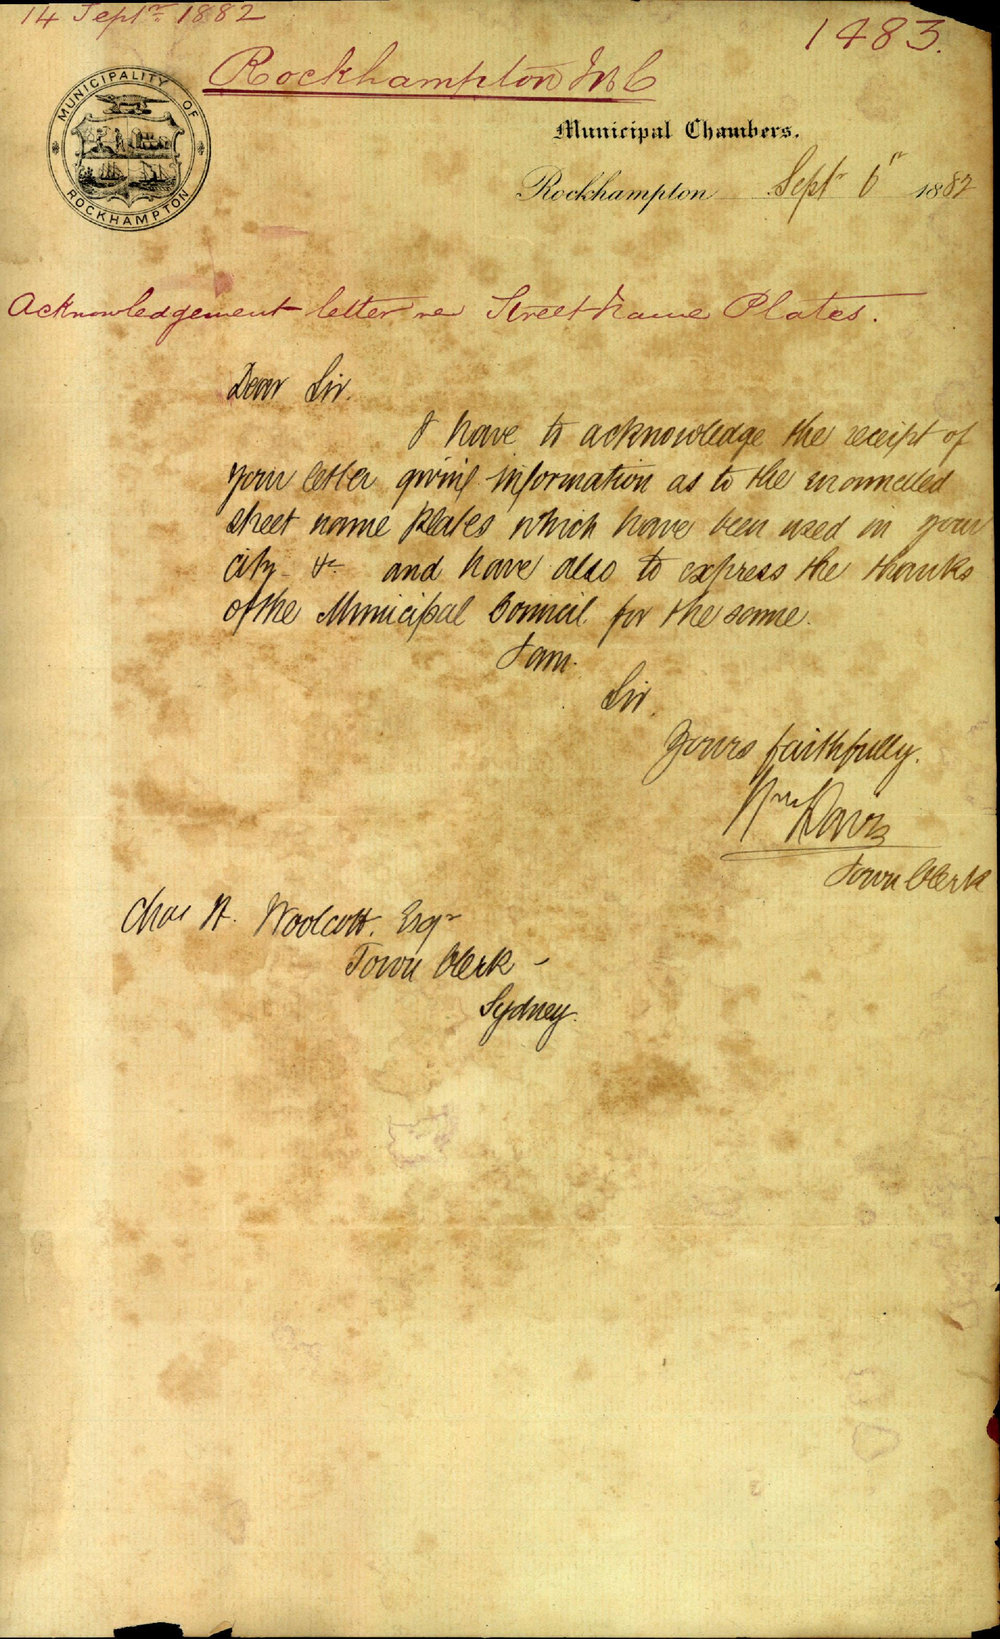 14 Septr 1882
1483.
Rockhampton M C
MUNICIPALITY OF ROCKHAMPTON
Municipal Chambers.
Rockhampton Septr 6th 1882
Acknowledgement letter re Street Name Plates.
Dear Sir.
I have to acknowledge the receipt of
your letter giving information as to the enamelled
street name plates which have been used in your
city &c and have also to express the thanks
of the Municipal Council for the same.
I am.
Sir.
Yours faithfully.
Wm Davis
Town Clerk
Chas H. Woolcott. Esqr
Town Clerk -
Sydney.